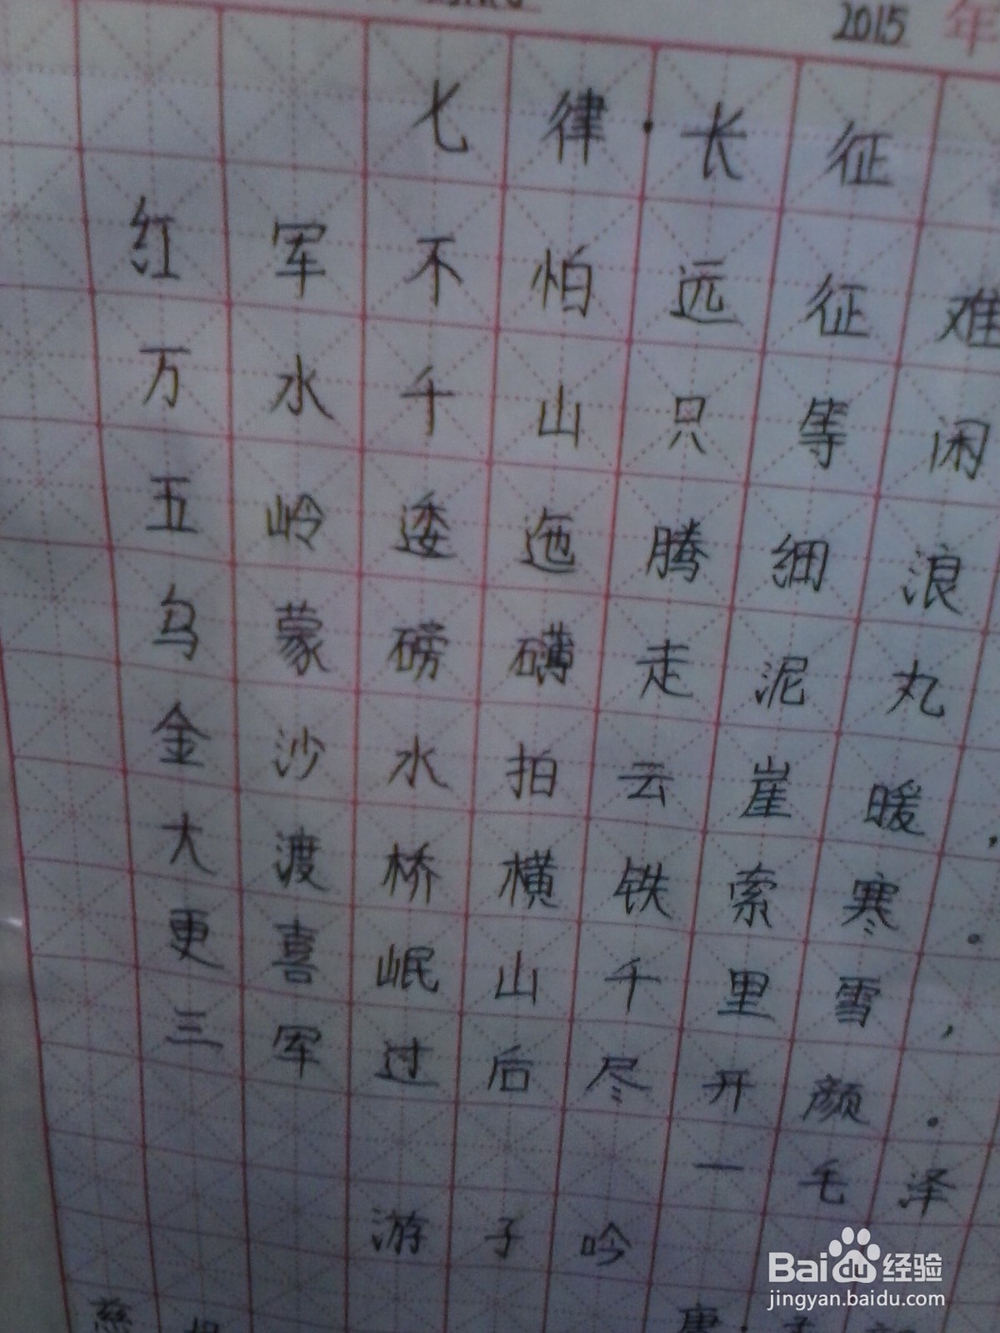 2015 年
七律·长征
红军不怕远征难
万水千山只等闲
五岭逶迤腾细浪
乌蒙磅礴走泥丸
金沙水拍云崖暖,
大渡桥横铁索寒。
更喜岷山千里雪,
三军过后尽开颜。
一毛泽
游子吟
慈
唐·孟
Baidu 经验
jingyan.baidu.com